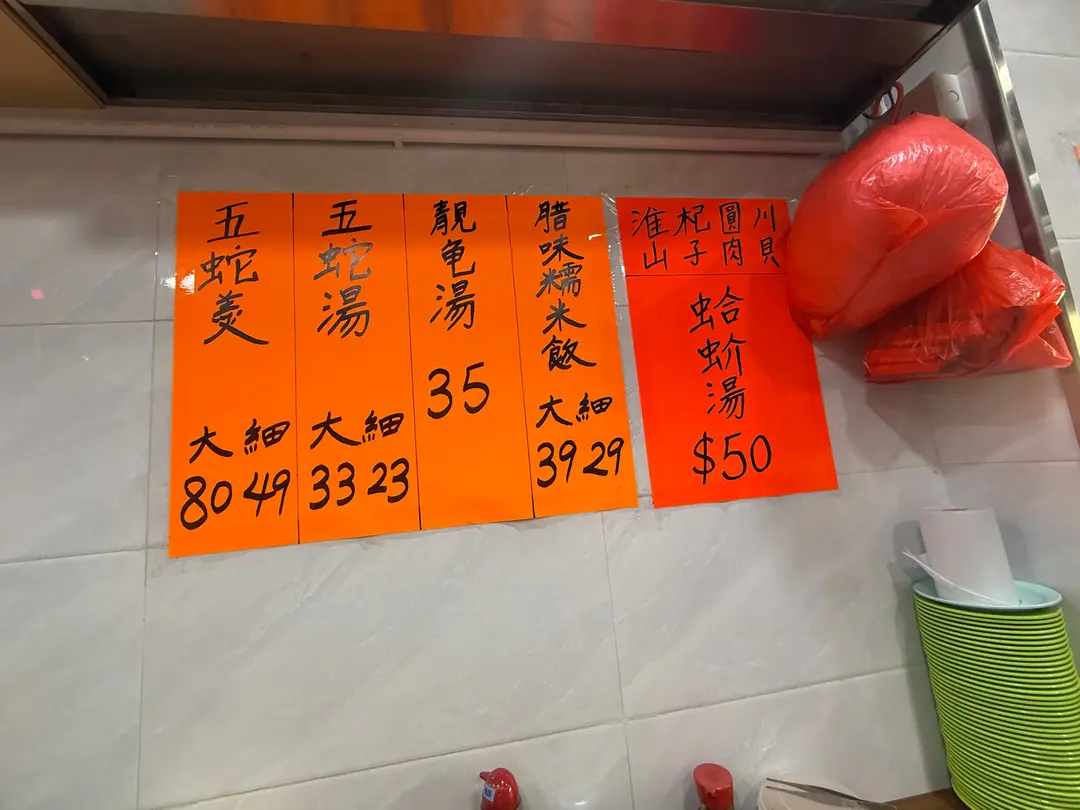 五蛇羹
大 細
80 49
五蛇湯
大 細
33 23
靚亀湯
35
腊味糯米飯
大 細
39 29
淮山
杞子
圓肉
川貝
蛤蚧湯
$50